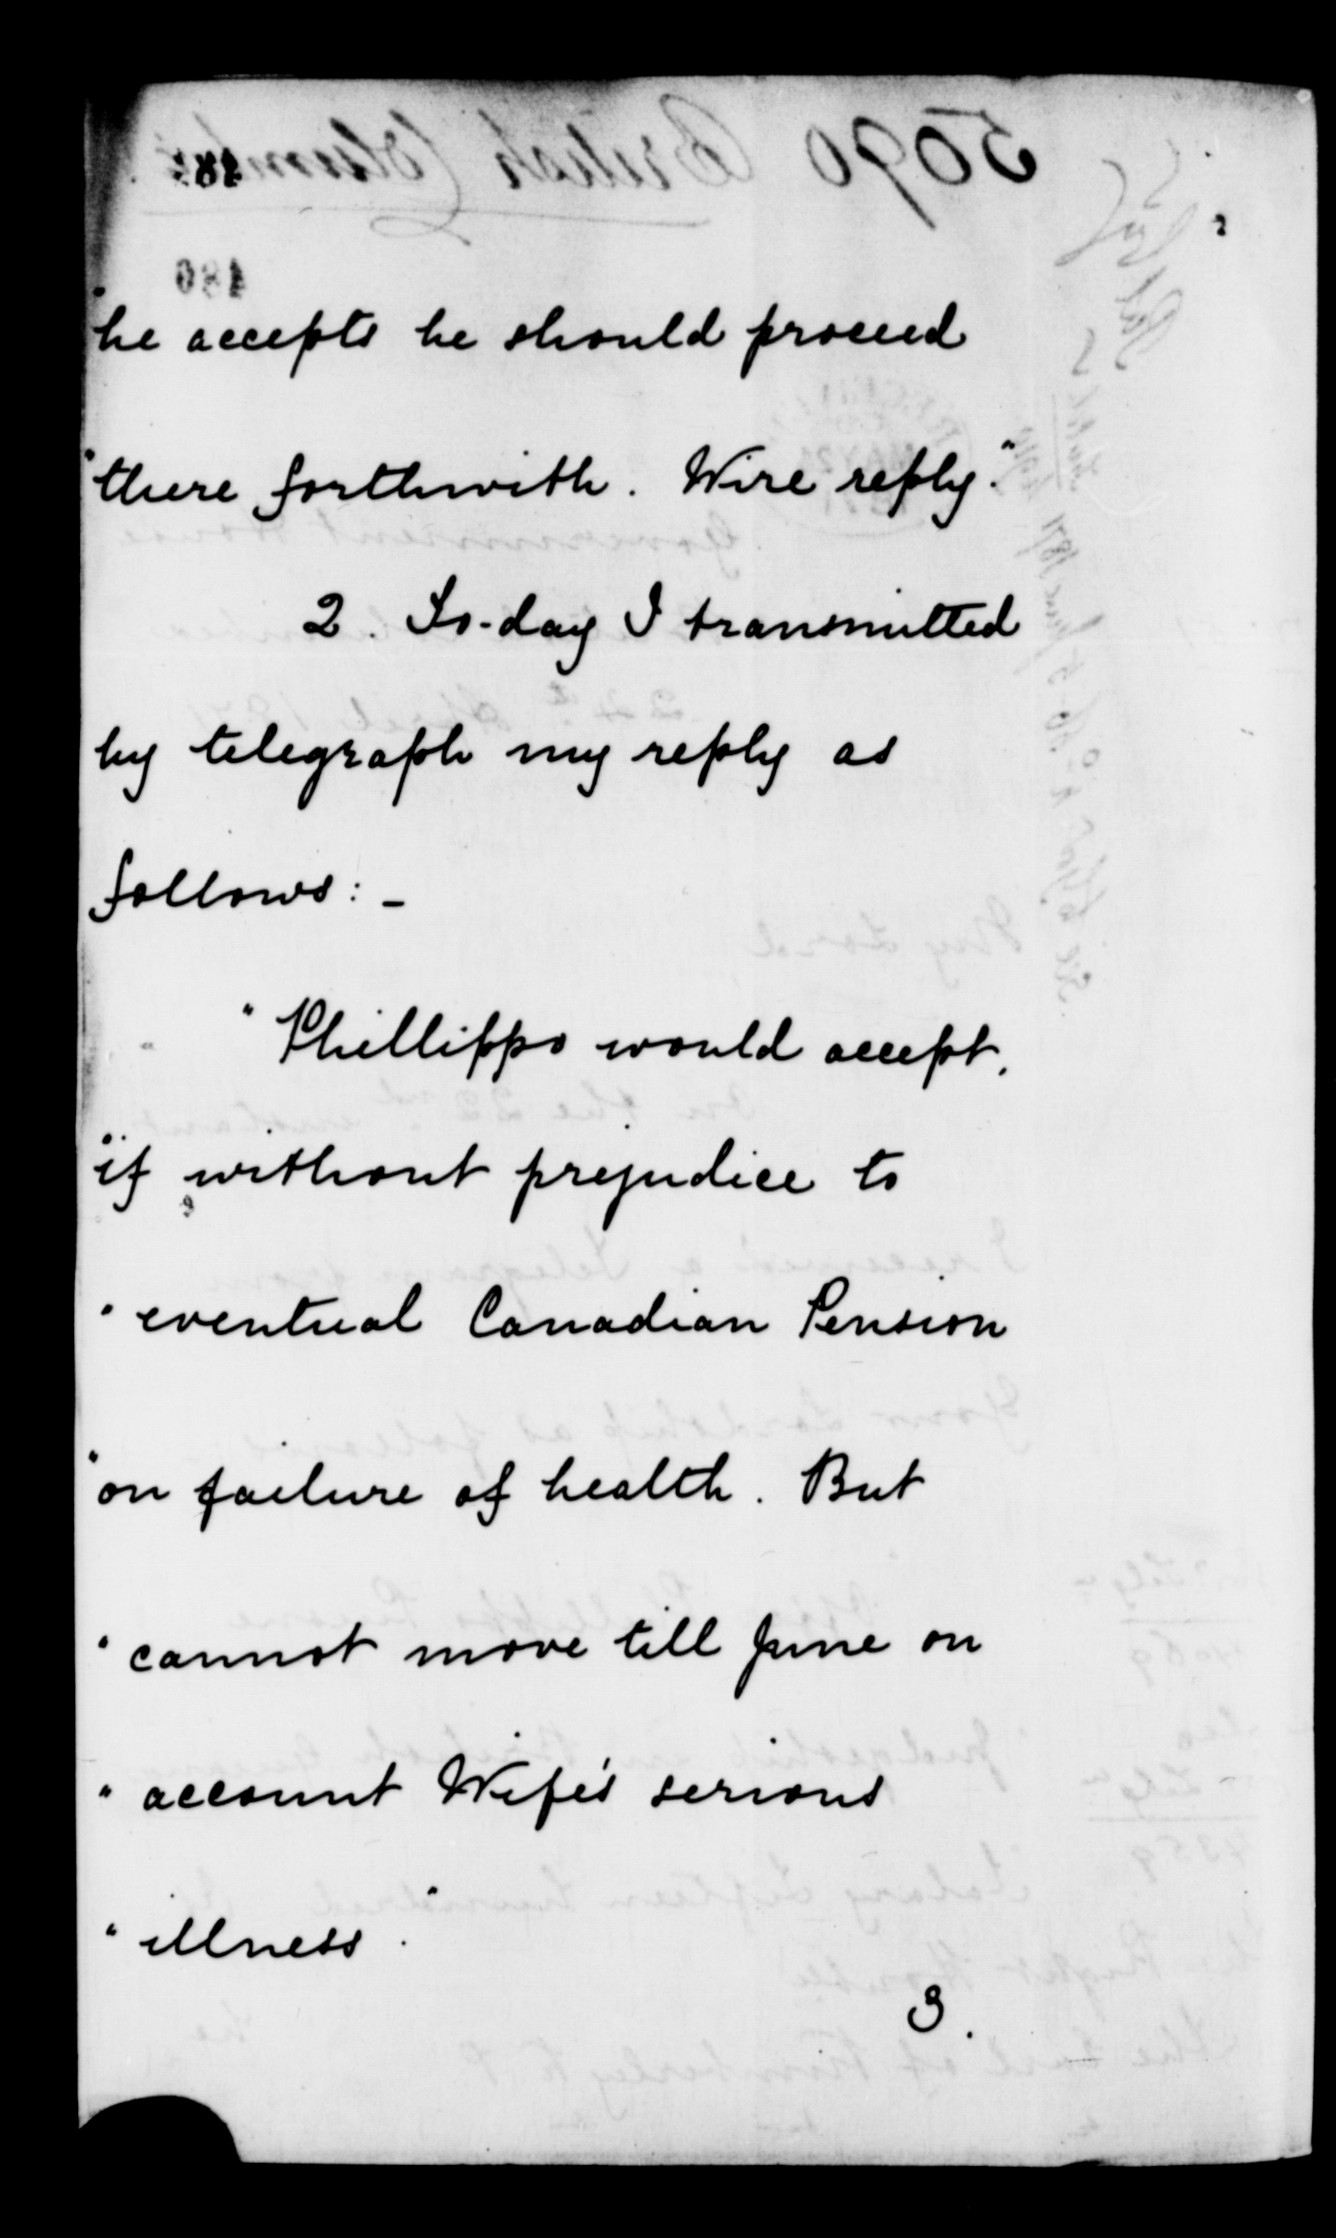 "he accepts he should proceed
"there forthwith. Wire reply."
2. To-day I transmitted
by telegraph my reply as
follows:-
"Phillippo would accept,
"if without prejudice to
"eventual Canadian Pension
"on failure of health. But
"cannot move till June on
"account Wife's serious
"illness."
3.